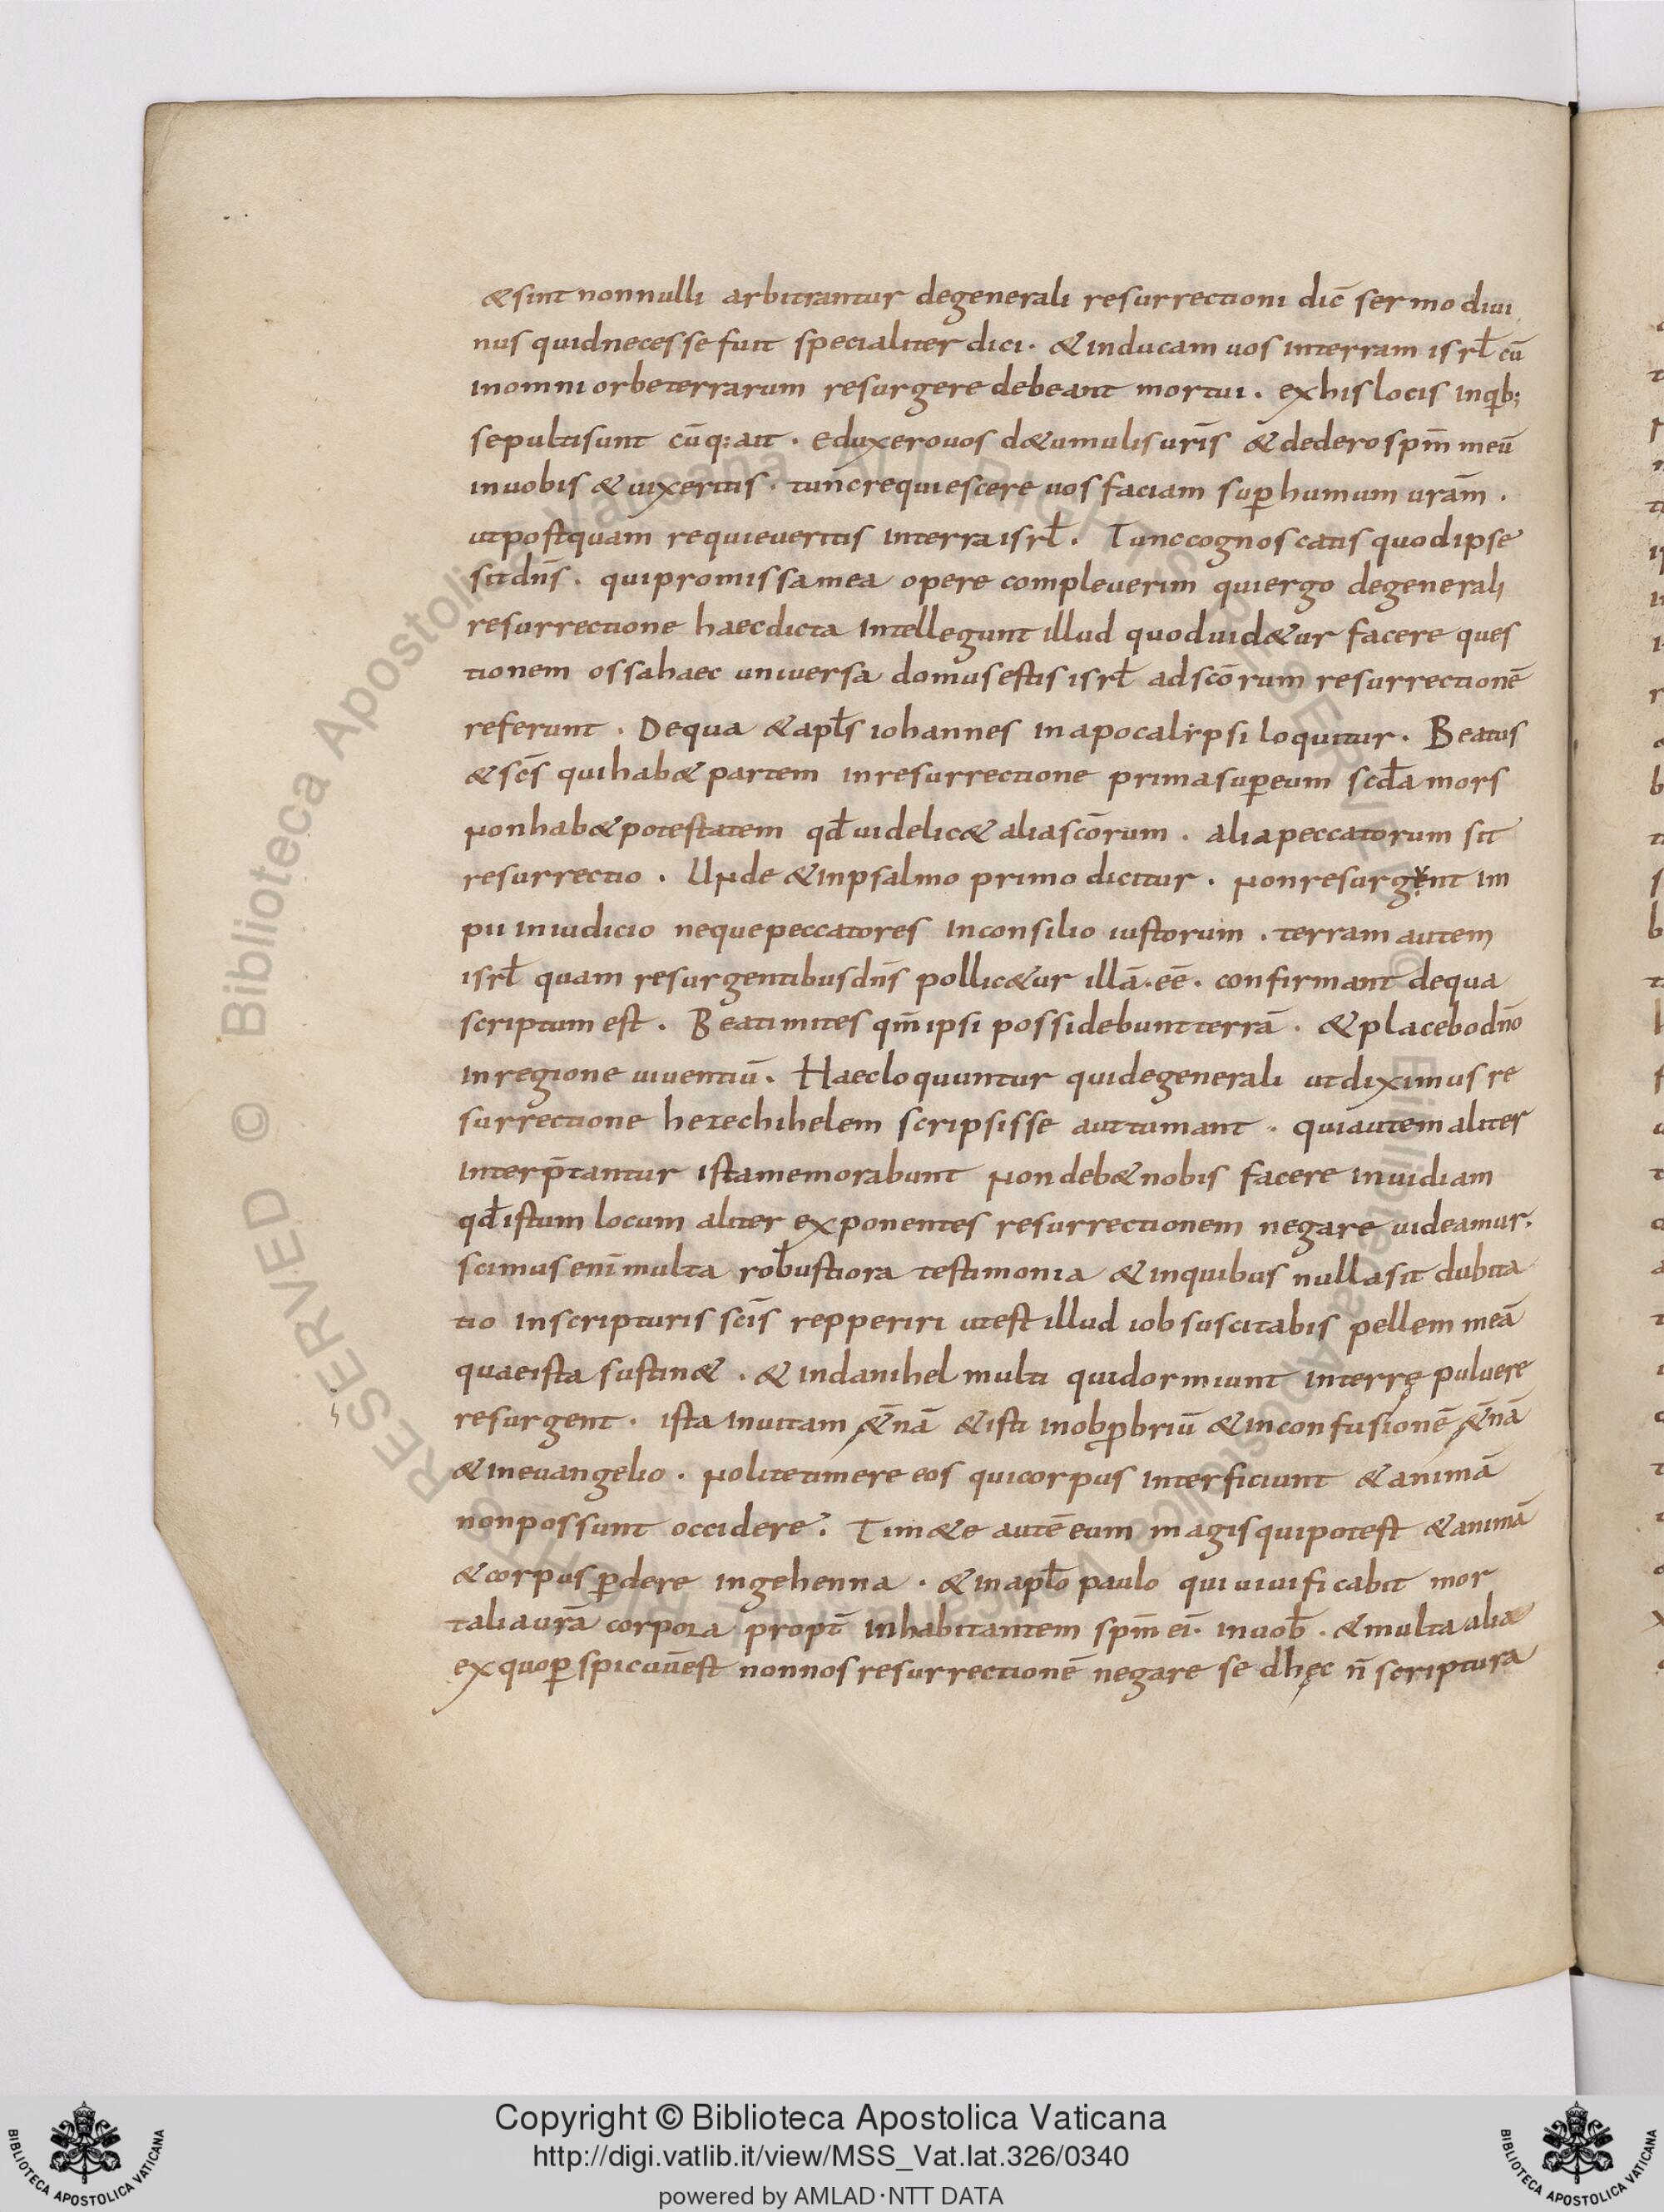 &sint nonnulli arbitrantur degenerali resurrectioni dic̄ sermo diui
nus quidnecesse fuit specialiter dici. &inducam uos interram isrł cū
inomni orbeterrarum resurgere debeant mortui. exhislocis inqb;
sepultisunt cūq:ait. eduxerouos d&umulisur̄is &dedero sp̄m meū
inuobis &uixeritis. tuncrequiescere uos faciam sup̱ humum ur̄am.
utpostquam requieueritis interraisrł. Tunccognoscatis quodipse
sitdn̄s. quipromissamea opere compleuerim quiergo degenerali
resurrectione haecdicta intellegunt illud quoduid&ur facere ques
tionem ossahaec uniuersa domusestis isrł adscōrum resurrectionē
referunt. Dequa &apłs iohannes inapocalipsi loquitur. Beatus
&sc̄s quihab& partem inresurrectione primasup̱eum scđa mors
nonhab&potestatem qđ uidelic& aliascōrum. aliapeccatorum sit
resurrectio. Unde &inpsalmo primo dicitur. nonresurgent im
pii iniudicio nequepeccatores inconsilio iustorum. terram autem
isrł quam resurgentibusdn̄s pollic&ur illā.eē. confirmant dequa
scriptum est. Beatimites qm̄ipsi possidebuntterrā. &placebodn̄o
inregione uiuentiū. Haecloquuntur quidegenerali utdiximus re
surrectione hezechihelem scripsisse auttumant. quiautem aliter
interp̄tantur istamemorabunt nondeb&nobis facere inuidiam
qđistum locum aliter exponentes resurrectionem negare uideamur.
scimus enī multa robustiora testimonia &inquibus nullasit dubita
tio inscripturis sc̄is repperiri utest illud iob suscitabis pellem meā
quaeista sustin&. &indanihel multi quidormiunt interrę puluere
resurgent. ista inuitam &̄nā &isti inobp̱briū &inconfusionē &̄nā
&ineuangelio. nolitetimere eos quicorpus interficiunt &animā
nonpossunt occidere. Tim&e autē eum magisquipotest &animā
&corpus p̱dere ingehenna. &inapło paulo qui uiuificabit mor
taliaur̄a corpora propt̄ inhabitantem sp̄m ei. inuob̄. &multa alia
exquop̱spicuūest nonnosresurrectionē negare se dhęc n̄ scriptura
Copyright © Biblioteca Apostolica Vaticana
http://digi.vatlib.it/view/MSS_Vat.lat.326/0340
powered by AMLAD·NTT DATA